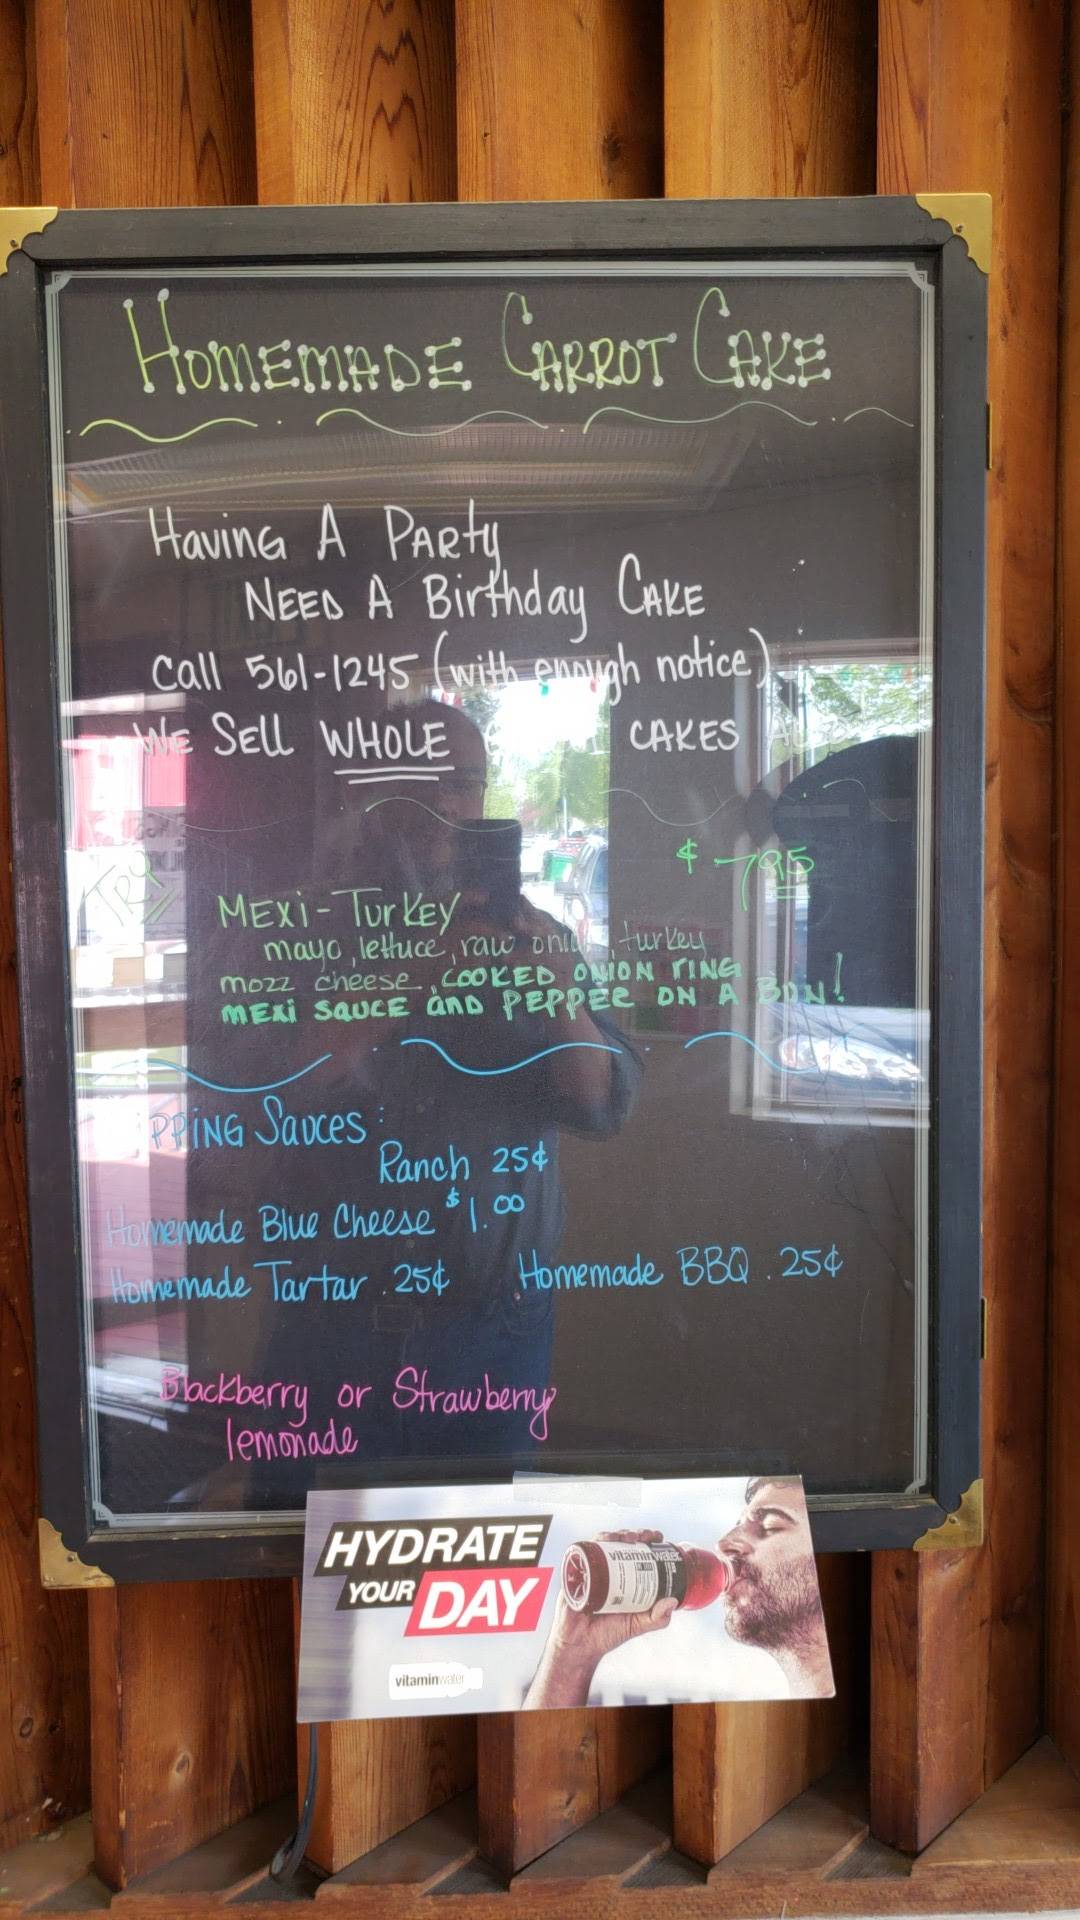 HOMEMADE CARROT CAKE
Having A Party
NEED A Birthday CAKE
Call 561-1245 (with enough notice)
WE Sell WHOLE CAKES ALSO
TRY
$ 7.95
MEXi-TurKEY
mayo, lettuce, raw onion, turkey
mozz cheese, COOKED ONION RING
MEXI SAUCE AND PEPPER ON A BUN!
PPING SAUCES:
Ranch 25¢
Homemade Blue Cheese $1.00
Homemade Tartar .25¢ Homemade BBQ .25¢
Blackberry or Strawberry
lemonade
HYDRATE
YOUR DAY
vitaminwater
vitaminwater